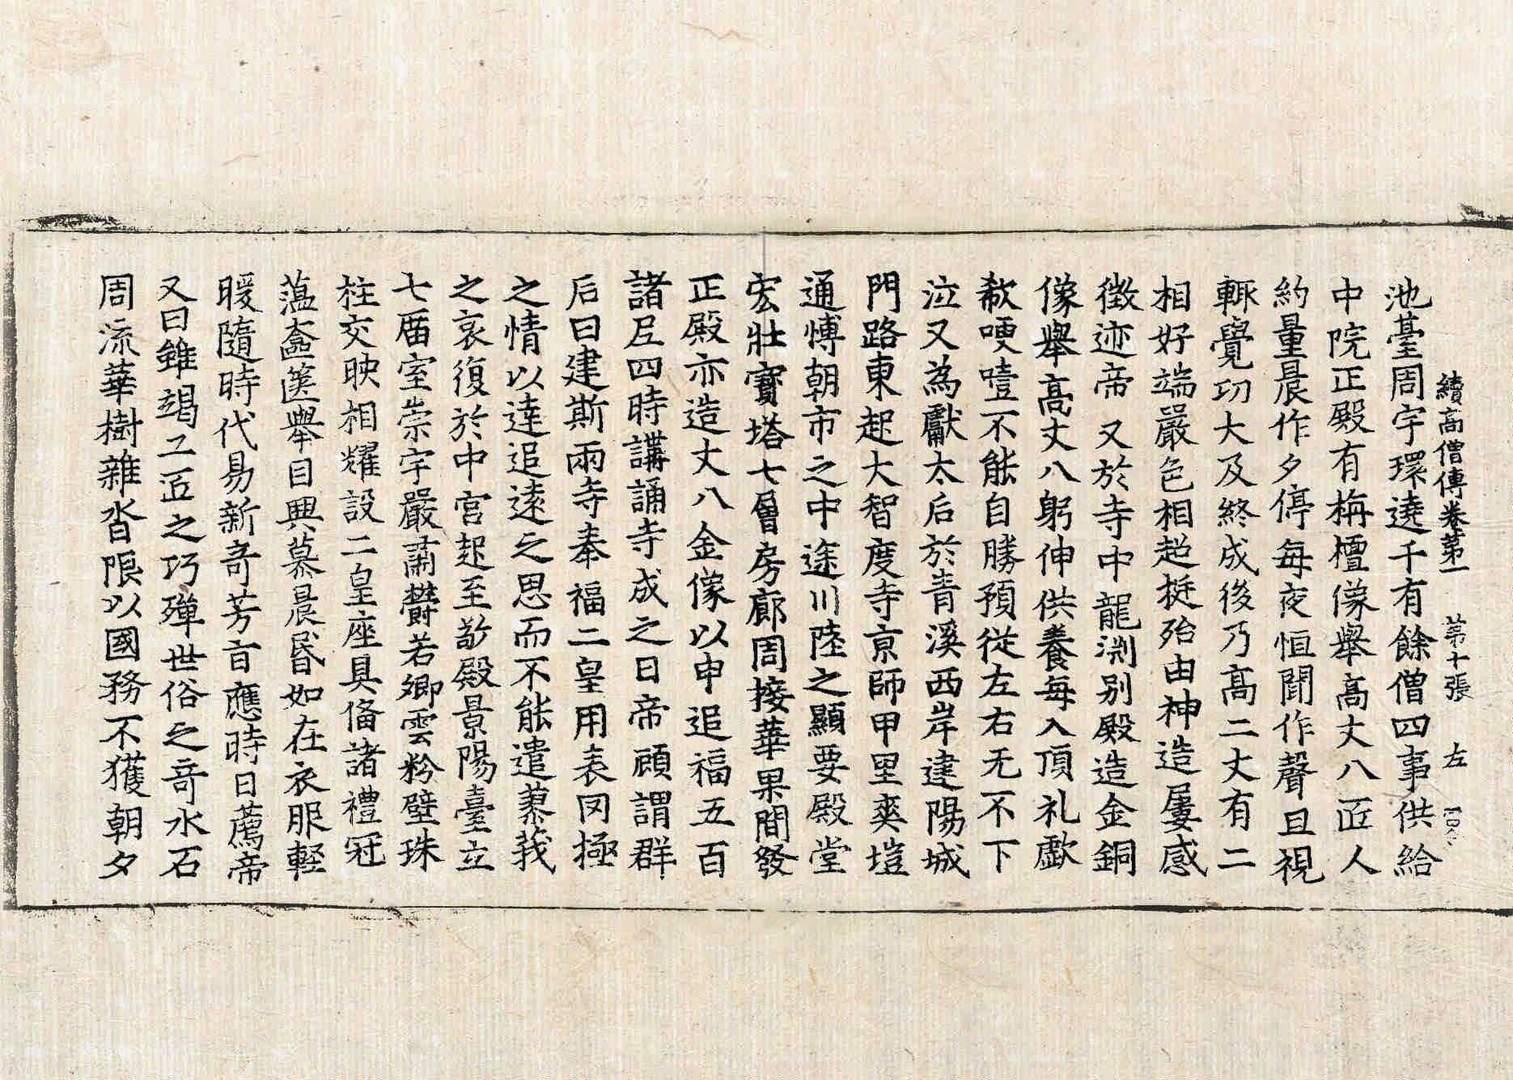 續高僧傳卷第一　第十張　左
池臺周宇環遶千有餘僧四事供給
中院正殿有栴檀像舉高丈八匠人
約量晨作夕停每夜恒聞作聲且視
輙覺功大及終成後乃高二丈有二
相好端嚴色相超挺殆由神造屢感
徴迹帝又於寺中龍渕别殿造金銅
像舉高丈八躬伸供養每入頂礼歔
欷哽噎不能自勝預從左右无不下
泣又為獻太后於青溪西岸建陽城
門路東起大智度寺京師甲里爽塏
通博朝市之中途川陸之顯要殿堂
宏壯寶塔七層房廊周接華果間發
正殿亦造丈八金像以申追福五百
諸尼四時講誦寺成之日帝顧謂群
后曰建斯兩寺奉福二皇用表罔極
之情以達追遠之思而不能遣蓼莪
之哀復於中宮起至敬殿景陽臺立
七廟室崇宇嚴肅欝若卿雲粉壁珠
柱交映相耀設二皇座具俻諸禮冠
蕰奩篋舉目興慕晨昏如在衣服輕
暖隨時代易新奇芳旨應時日薦帝
又曰雖竭工匠之巧殫世俗之奇水石
周流華樹雜沓限以國務不獲朝夕